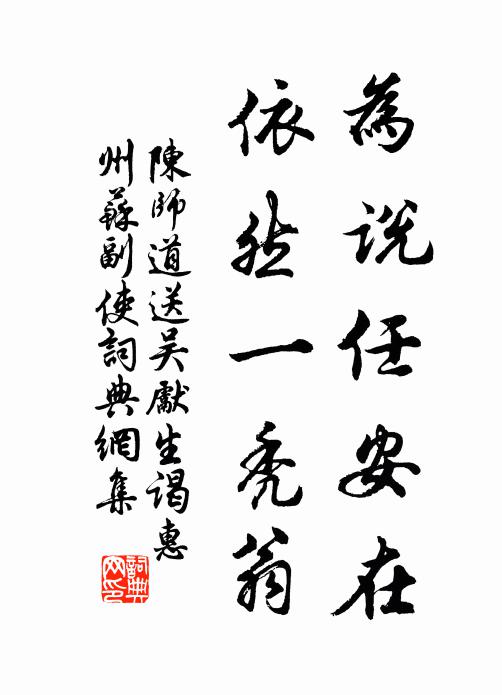 為説任安在
依然一禿翁
陳師道送吴獻生謁惠
州蘇副使詞典網集
詞典
网印